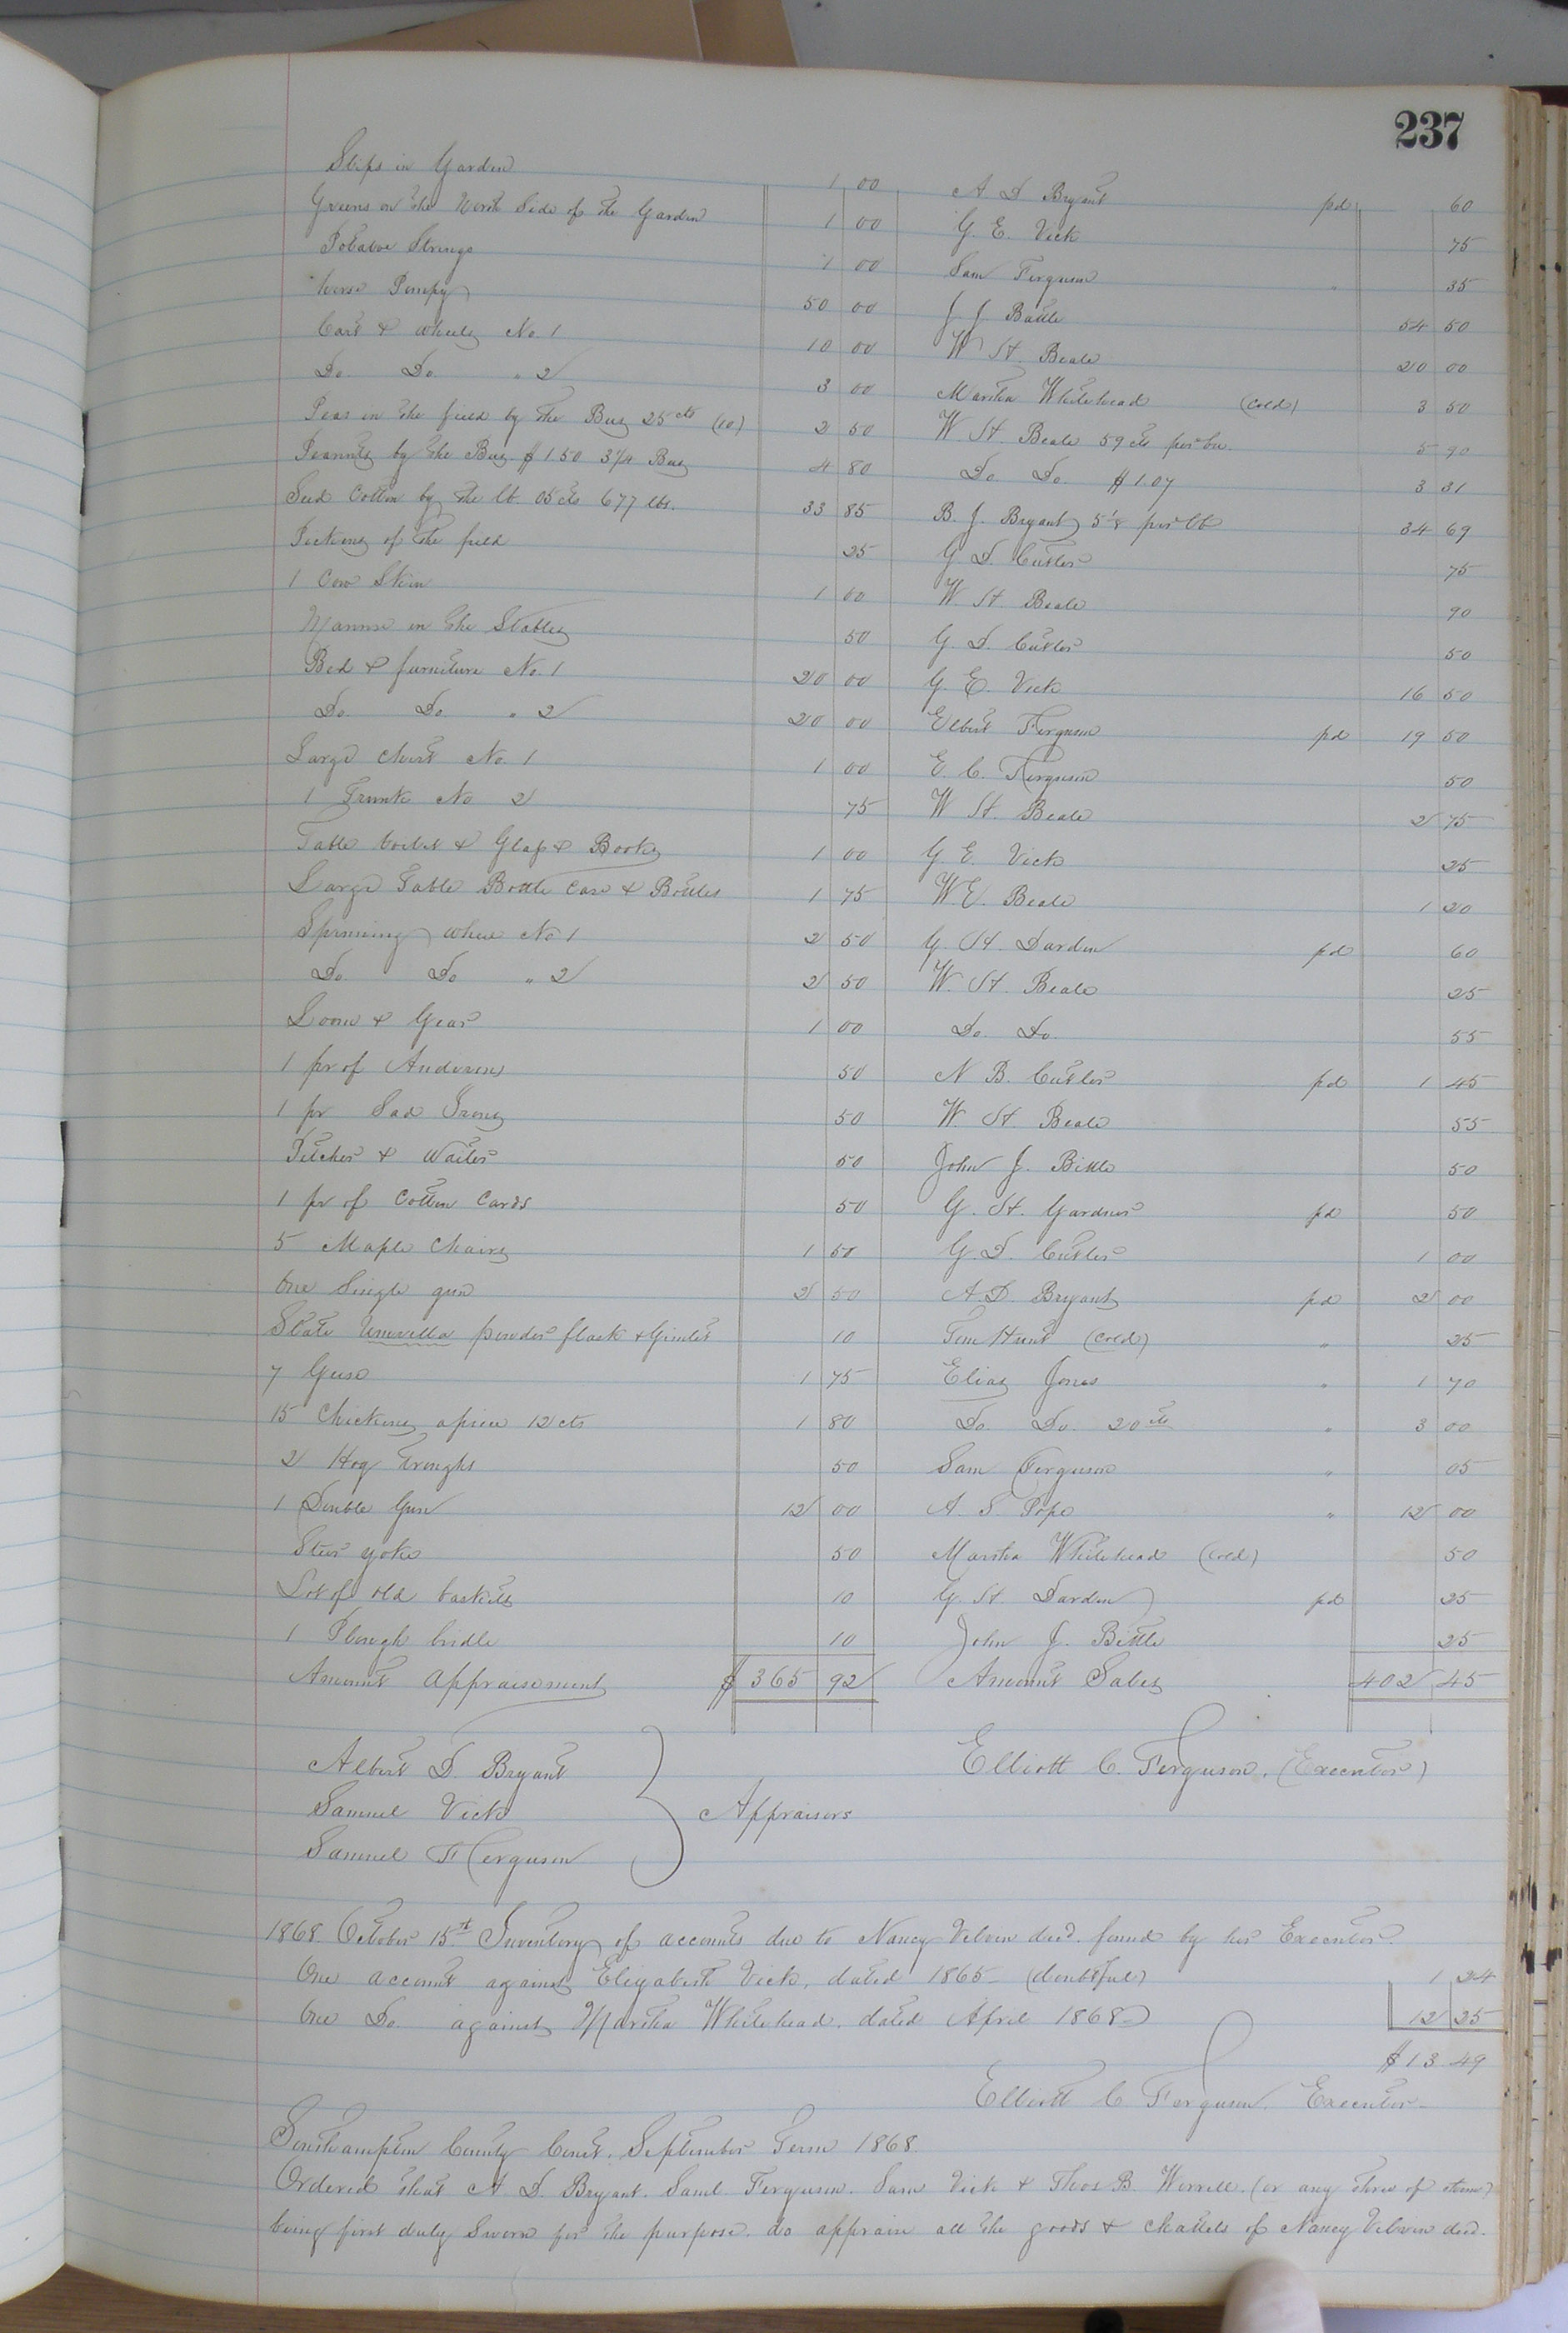 237
Slips in Garden 1 00 A D Bryant pd 60
Greens on the North Side of the Garden 1 00 G. E. Vick 75
Potatoe Strings 1 00 Sam Ferguson " 35
horse Pompy 50 00 J. J. Battle 54 50
Cart & wheels No. 1 10 00 W H. Beale 20 00
Do. Do. " 2 3 00 Martha Whitehead (cold) 3 50
Peas in the field by the Bus 25 cts (10) 2 50 W. H. Beale 59 cts per bu. 5 90
Peanuts by the Bus. $1.50 3¼ Bus 4 80 Do. Do. $1.07 3 31
Seed Cotton by the lb. 05 cts 677 lbs. 33 85 B. J. Bryant 5⅛ per lb 34 69
Pickings of the field 25 G. D. Cutler 75
1 Cow Skin 1 00 W. H. Beale 90
Manure in the Stables 50 G. D. Cutler 50
Bed & furniture No. 1 20 00 G. E. Vick 16 50
Do. Do. " 2 20 00 Elbert Ferguson pd 19 50
Large Chest No. 1 1 00 E. C. Ferguson 50
1 Trunk No 2 75 W H. Beale 2 75
Table toilet & Glass & Books 1 00 G. E. Vick 25
Large Table Bottle Case & Bottles 1 75 W. E. Beale 1 20
Spinning wheel No 1 2 50 G. H. Darden pd 60
Do Do " 2 2 50 W. H. Beale 25
Loom & Gear 1 00 Do. Do. 55
1 pr of Andirons 50 N. B. Cutler pd 1 45
1 pr Sad Irons 50 W. H. Beale 55
Pitcher & Waiter 50 John J. Bittle 50
1 pr of Cotton Cards 50 G. H. Gardner pd 50
5 Maple Chairs 1 50 G. D. Cutler 1 00
One Single gun 2 50 A. D. Bryant pd 2 00
Slate Umvrella powder flask & Gimlet 10 Tom Hunt (cold) " 25
7 Geese 1 75 Elias Jones " 1 70
15 Chickens apiece 12 cts 1 80 Do. Do. 20 cts " 3 00
2 Hog Troughs 50 Sam Ferguson " 05
1 Double Gun 12 00 A. S. Pope " 12 00
Steer yoke 50 Martha Whitehead (cold) 50
Lot of old baskets 10 G. H. Darden pd 25
1 Plough bridle 10 John J. Bittle 25
Amount Appraisement $ 365 92 Amount Sales 402 45
Albert D. Bryant Elliott C. Ferguson. (Executor)
Samuel Vick Appraisors
Samuel Ferguson
1868 October 15th Inventory of accounts due to Nancy Velvin decd. found by her Executor.
One account against Elizabeth Vick, dated 1865 - (doubtful) 1 24
One Do. against Martha Whitehead. dated April 1868 - 12 25
$13 49
Elliott C Ferguson. Executor -
Southampton County Court. September Term 1868.
Ordered that A. D. Bryant. Saml Ferguson. Sam Vick & Thos B. Worrell. (or any three of them)
being first duly Sworn for the purpose. do appraise all the goods & chattels of Nancy Velvin decd.